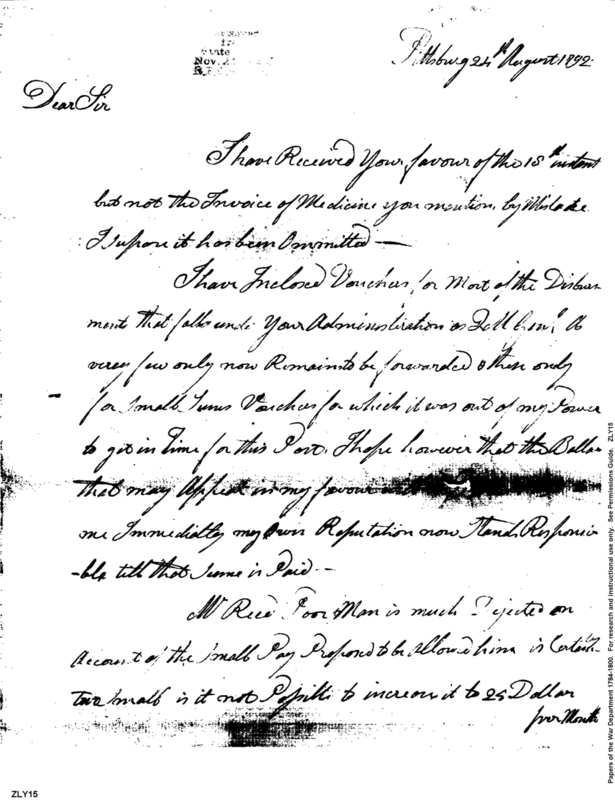 State
Nov. 2
Pittsburg 24th August 1792.
Dear Sir
I have Received Your favour of the 18th instant
but not the Invoice of Medicine you mention, by Mistake
I supose it has been Ommitted —
I have Inclosed Vouchers for Most of the Disburs
ment that falls under Your Administration as Q M Genl. A
verey few only now Remains to be forwarded & them only
for Small Sums Vouchers for which it was out of my Power
to git in Time for this Post, I hope however that the Ballan
that may Appear in my favour
me Immediatley my Own Reputation now Stands Responsi
-ble till that Sume is Paid —
Mr Reed Poor Man is much Dejected on
Account of the Small Pay Proposed to be allowed him is Certainly
two Small is it not Possible to increase it to 25 Dollar
per Month
ZLY15
Papers of the War Department 1784-1800. For research and instructional use only. See Permissions Guide. ZLY15